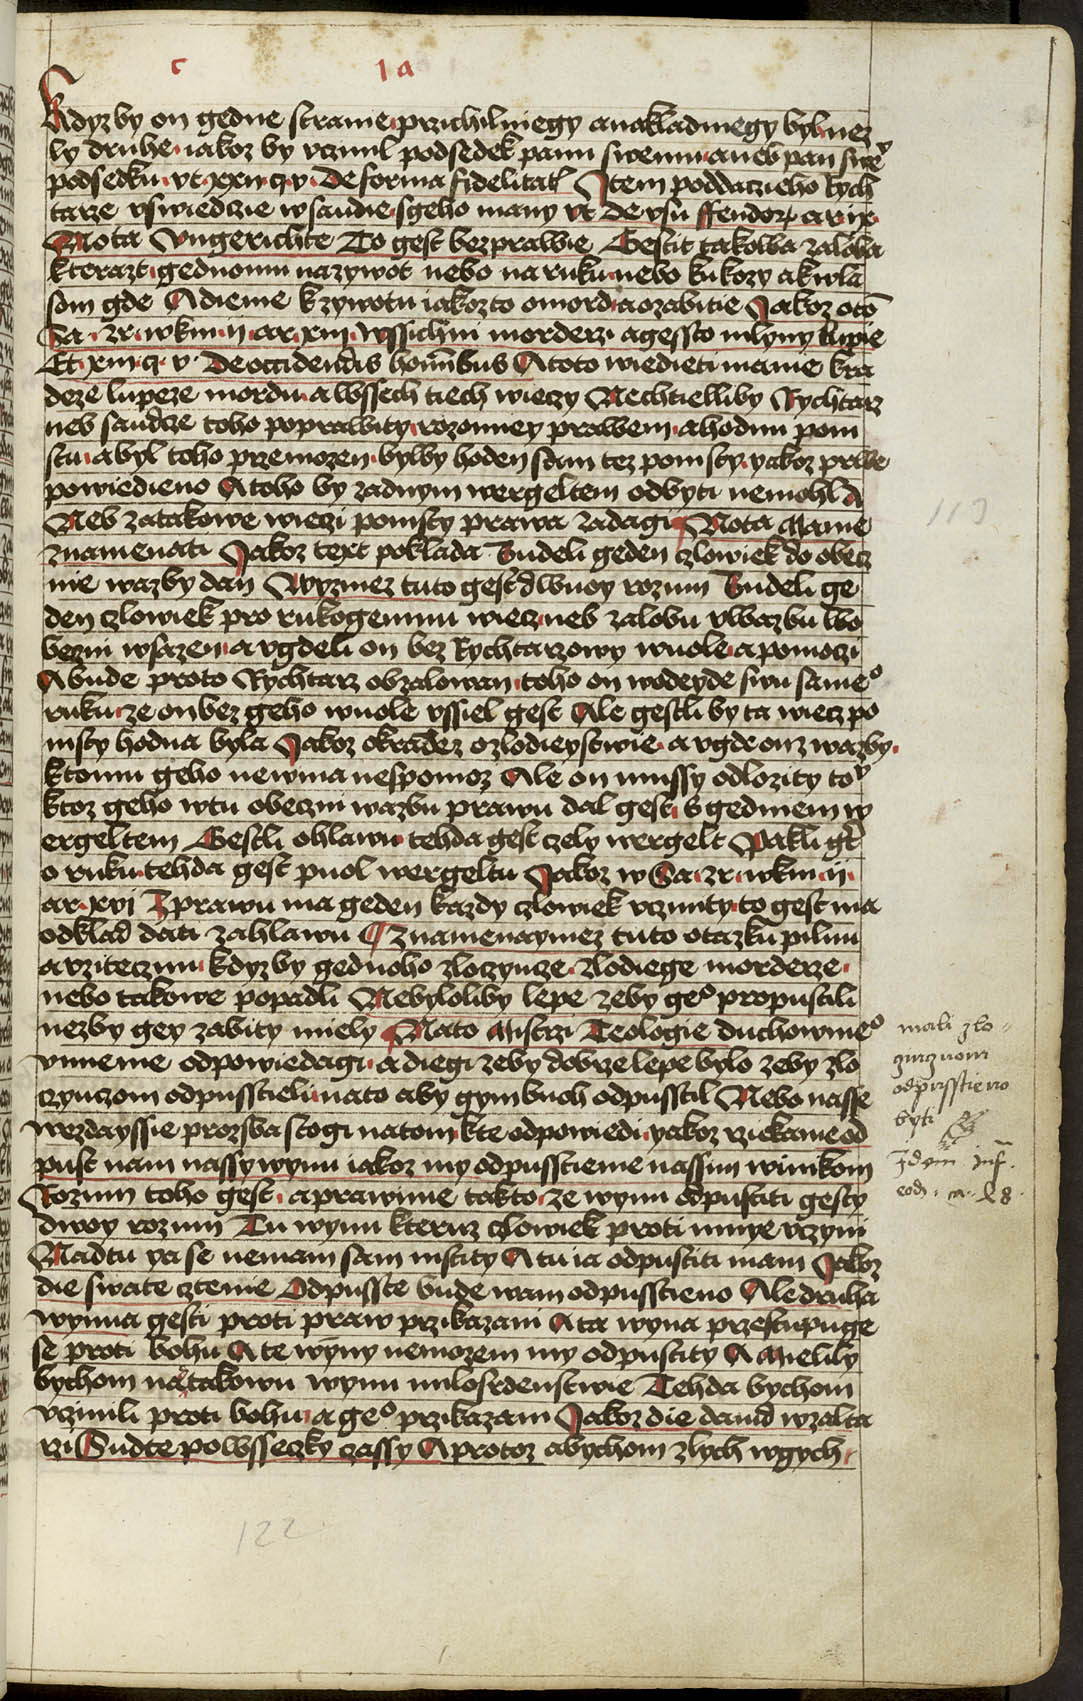 c 1a
Kdyz by on gedne stranie przichilniegy a nakladniegy byl nez
ly druhe iakoz by vczinil podsedek panu swemu a neb pan swe
podsedku vt xxii q v De forma fidelitat Item poddaczieho Rych
tarze vswiedczie w saudie s geho many vt De vsu ffendor ar ix
Nota Vngerichte To gest bezprawie Gestit takowa zaloba
kterazt gednomu na zywot nebo na ruku nebo k kozy a k wla
som gde A dieme k zywotu iakozto o mord a o zabitie Jakoz oto
Sa zr w km ii ar xiii wssichni morderzi a gessto mlyny lupie
Et xiii q v De occidendis hominibus A toto wiedieti mame kra
deze lupeze mordu a wssech tiech wieczy Nechtielliby Rychtarz
neb saudcze toho poprawity rozomney prawem a hodnu pom
stu a byl toho przemozen bylby hoden sam tez pomsty yakoz prwe
powiedieno A toho by zadnym wergeltem odbyti nemohl A
Neb za takowe wieczi pomsty prawa zadagi Nota Mame
znamenati Jakoz text poklada Budeli geden czlowiek do obecz
nie wazby dan Wyzmez tuto gest dwuoy rozum Budeli ge
den czlowiek pro rukogemnu wiecz neb zalobu v wazbu w o
beczni wsazen a vgdeli on bez Rychtarzowy wuole a pomoczi
A bude proto Rychtarz obzalowan toho on wodeyde swu same
ruku ze on bez geho wuole vssiel gest Ale gestli by ta wiecz po
msty hodna byla Jakoz okradez o zlodieystwie a vgde on z wazby
k tomu geho newina nespomoz Ale on mussy odlozity to
ktoz geho w tu obeczni wazbu prawu dal gest s gedniem w
ergeltem Gestli o hlawu tehda gest czely wergelt Pakli gt
o ruku tehda gest puol wergeltu Jakoz w Sa zr w km ii
ar xvi Z prawu ma geden kazdy czlowiek vczinity to gest ma
odklad dati za hlawu Znamenaymez tuto otazku pilnu
a vzitecznu kdyz by gednoho zloczyncze zlodiege morderze
nebo takowe popadli Nebyloliby lepe zeby ge propustili
nezby gey zabity miely Na to Mistrzi Teologie duchownie
vmenie odpowiedagi a diegi zeby dobrze lepe bylo zeby zlo
czynczom odpusstieli na to aby gym buoh odpusstil Nebo nasse
wezdayssie prozsba stogi na tom kte odpowiedi yakoz rziekame od
pust nam nassy wynu iakoz my odpusstieme nassim winikom
Rozum toho gest a prawime takto ze wynu odpustiti gesty
dwoy rozum Tu wynu kteruz czlowiek proti mnye vczyni
Nadtu ya se nemam sam mstity A tu ia odpustiti mam Jakoz
die swate cztenie Odpusste bude wam odpusstieno Ale druha
wynna gesti proti praw przikazani A ta wyna przestupuge
se proti bohu A te wyny nemozem my odpustity A Mielily
bychom na takowu wynu milosrdenstwie Tehda bychom
vczinili proti bohu a ge przikazani Jakoz die dauid w zalta
rzi Sudte po wsseczky czassy A protoz abychom zlych w gych
113
mali zlo
czinczuom
odpusstieno
byti
Idem inf.
eod. a. 28.
122